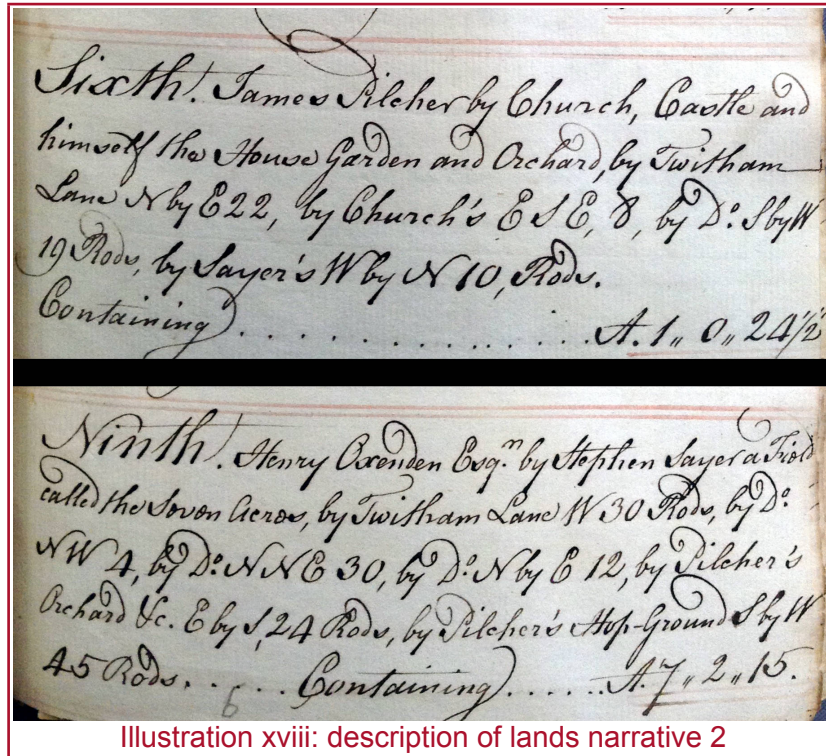 Sixth. James Pilcher by Church, Castle and
himself the House Garden and Orchard, by Twitham
Lane N by E 22, by Church's E S E, 8, by Do. S by W
19 Rods, by Sayer's W by N 10, Rods.
Containing) . . . . . . . . . . . . . . A. 1 ,, 0 ,, 24 1/2
Ninth. Henry Oxenden Esqr. by Stephen Sayer a Field
called the Seven Acres, by Twitham Lane W 30 Rods, by Do.
NW 4, by Do. N N E 30, by Do. N by E 12, by Pilcher's
Orchard &c. E by S, 24 Rods, by Pilcher's Hop-Ground S by W
45 Rods. . . . . . Containing) . . . . . . A. 7 ,, 2 ,, 15.
6
Illustration xviii: description of lands narrative 2